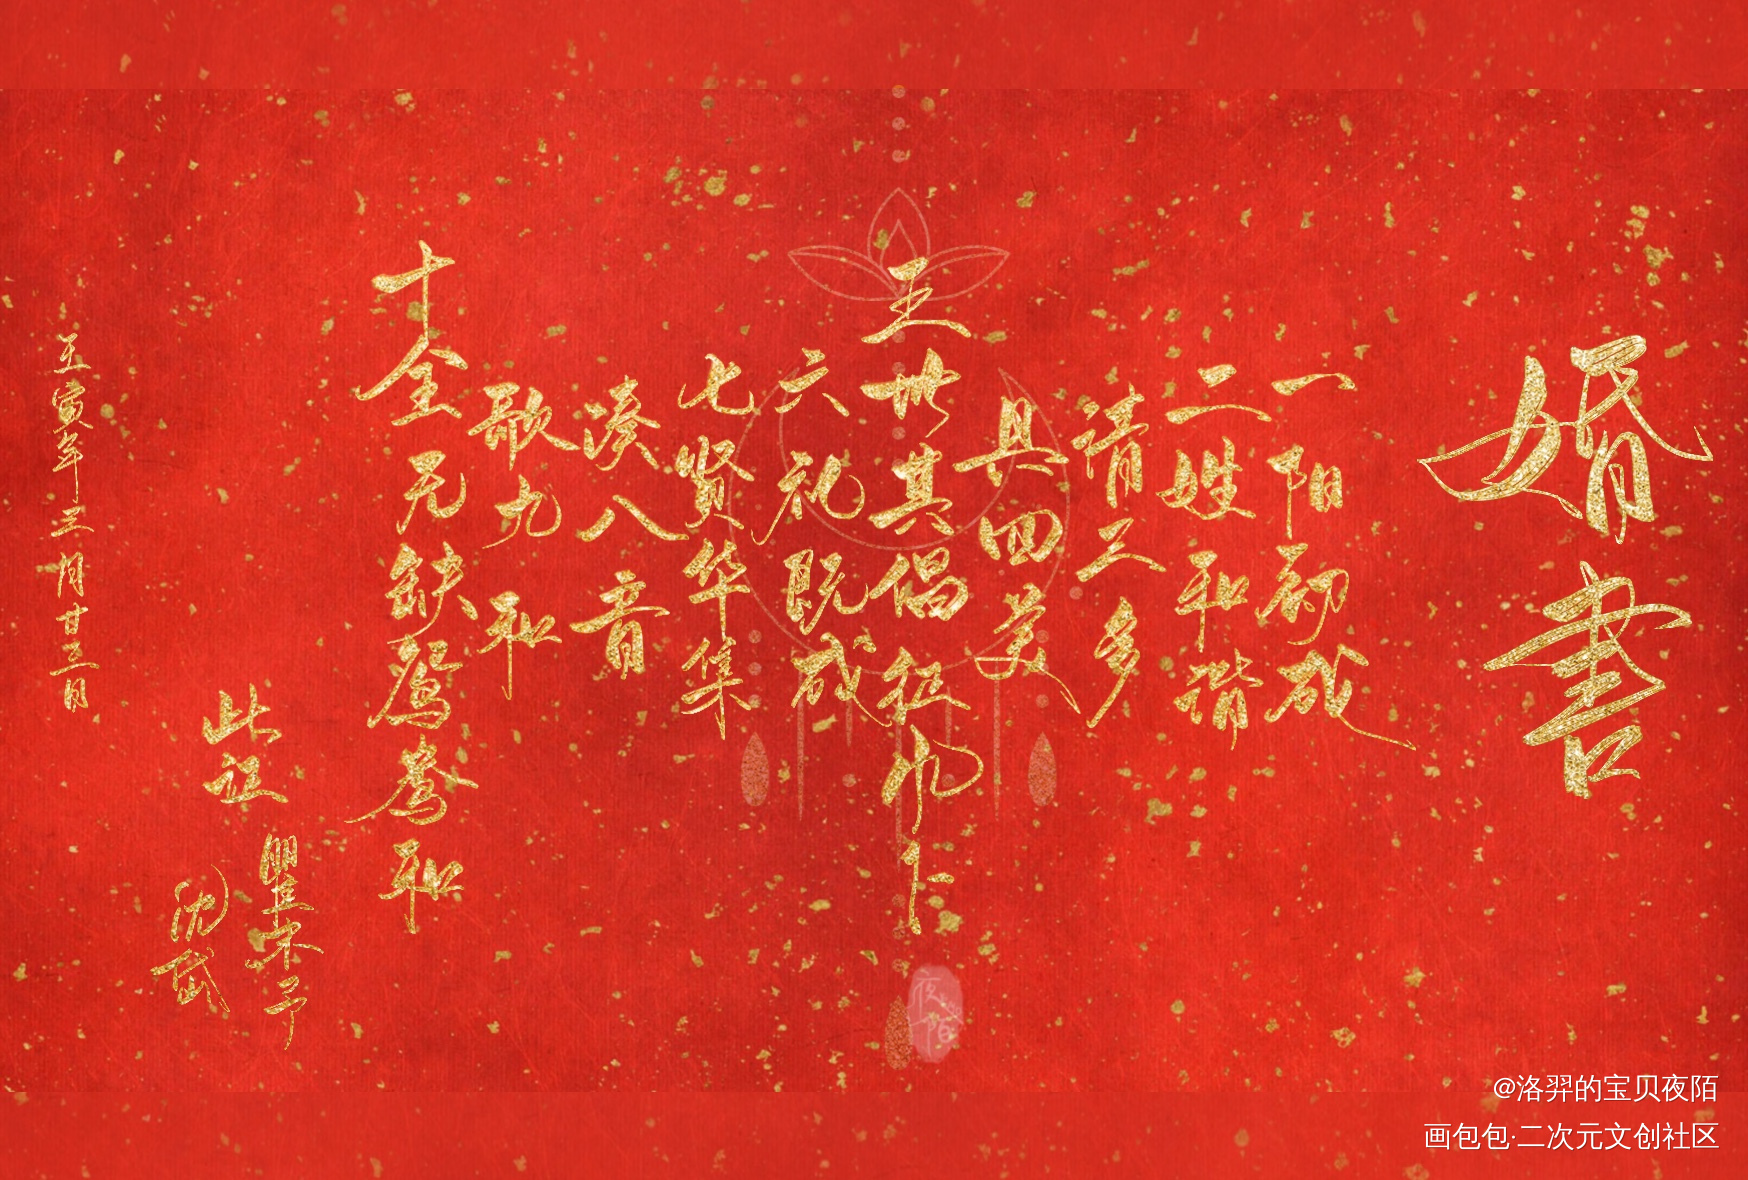 婚書
一阳初成
二姓和谐
请三多
具四美
五世其倡征凤卜
六礼既成
七贤华集
凑八音
歌九和
十全无缺鸳鸯和
此证
瞿宋予
沈岱
壬寅年三月廿三日
夜陌
@洛羿的宝贝夜陌
画包包·二次元文创社区